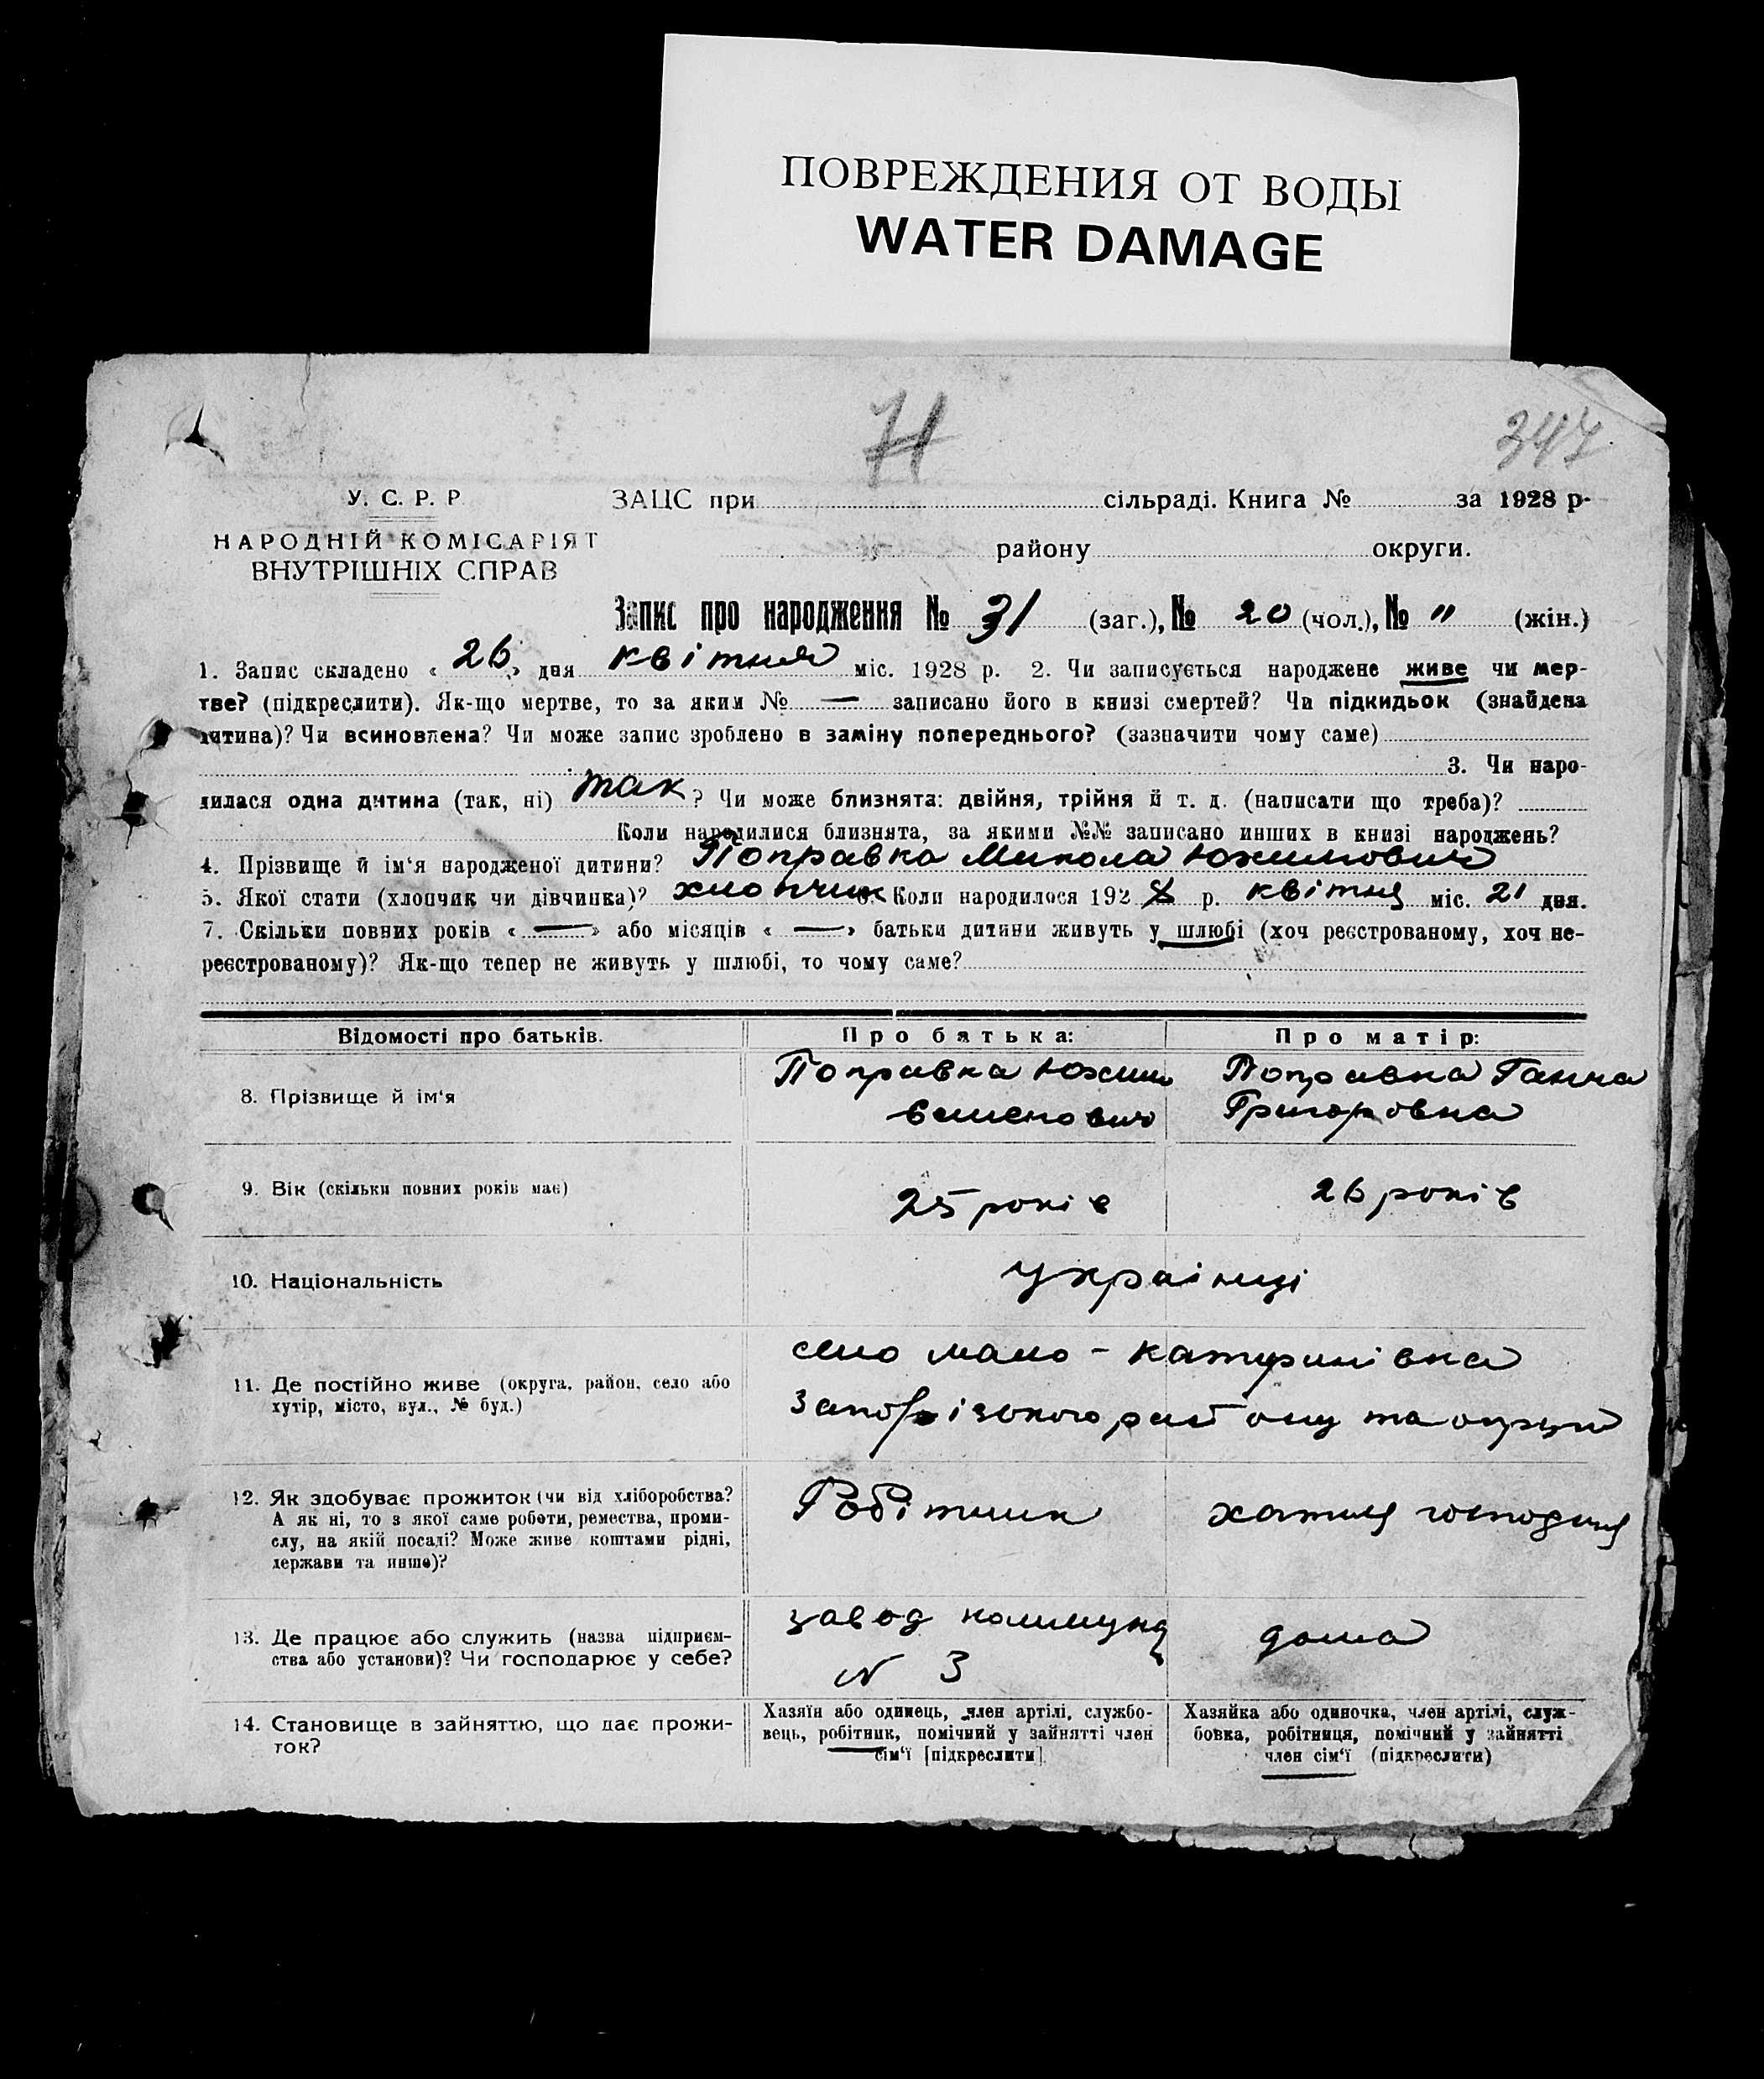 ПОВРЕЖДЕНИЯ ОТ ВОДЫ
WATER DAMAGE
71
347
У. С. Р. Р.
НАРОДНІЙ КОМІСАРІЯТ
ВНУТРІШНІХ СПРАВ
ЗАЦС при сільраді. Книга № за 1928 р.
району округи.
Запис про народження № 31 (заг.), № 20 (чол.), № " (жін.)
1. Запис складено « 26 » дня квітня міс. 1928 р. 2. Чи записується народжене живе чи мер-
тве? (підкреслити). Як-що мертве, то за яким № — записано його в книзі смертей? Чи підкидьок (знайдена
дитина)? Чи всиновлена? Чи може запис зроблено в заміну попереднього? (зазначити чому саме)
3. Чи наро-
дилася одна дитина (так, ні) так ? Чи може близнята: двійня, трійня й т. д. (написати що треба)?
Коли народилися близнята, за якими №№ записано инших в книзі народжень?
4. Прізвище й ім'я народженої дитини? Поправка Микола Юхимович
5. Якої стати (хлопчик чи дівчинка)? хлопчик 6. Коли народилося 1928 р. квітня міс. 21 дня.
7. Скільки повних років « — » або місяців « — » батьки дитини живуть у шлюбі (хоч реєстрованому, хоч не-
реєстрованому)? Як-що тепер не живуть у шлюбі, то чому саме?
Відомості про батьків. Про батька: Про матір:
8. Прізвище й ім'я
Поправка Юхим
Семенович
Поправка Ганна
Григоровна
9. Вік (скільки повних років має)
25 років
26 років
10. Національність
українці
11. Де постійно живе (округа, район, село або
хутір, місто, вул., № буд.)
село мало - катеринівка
Запорізького району та округи
12. Як здобуває прожиток (чи від хліборобства?
А як ні, то з якої саме роботи, ремества, проми-
слу, на якій посаді? Може живе коштами рідні,
держави та инше)?
Робітник
хатня господиня
13. Де працює або служить (назва підприєм-
ства або установи)? Чи господарює у себе?
завод коммунар
№ 3
дома
14. Становище в зайняттю, що дає прожи-
ток?
Хазяїн або одинець, член артілі, службо-
вець, робітник, помічний у зайнятті член
сім'ї [підкреслити]
Хазяйка або одиночка, член артілі, служ-
бовка, робітниця, помічний у зайнятті
член сім'ї (підкреслити)